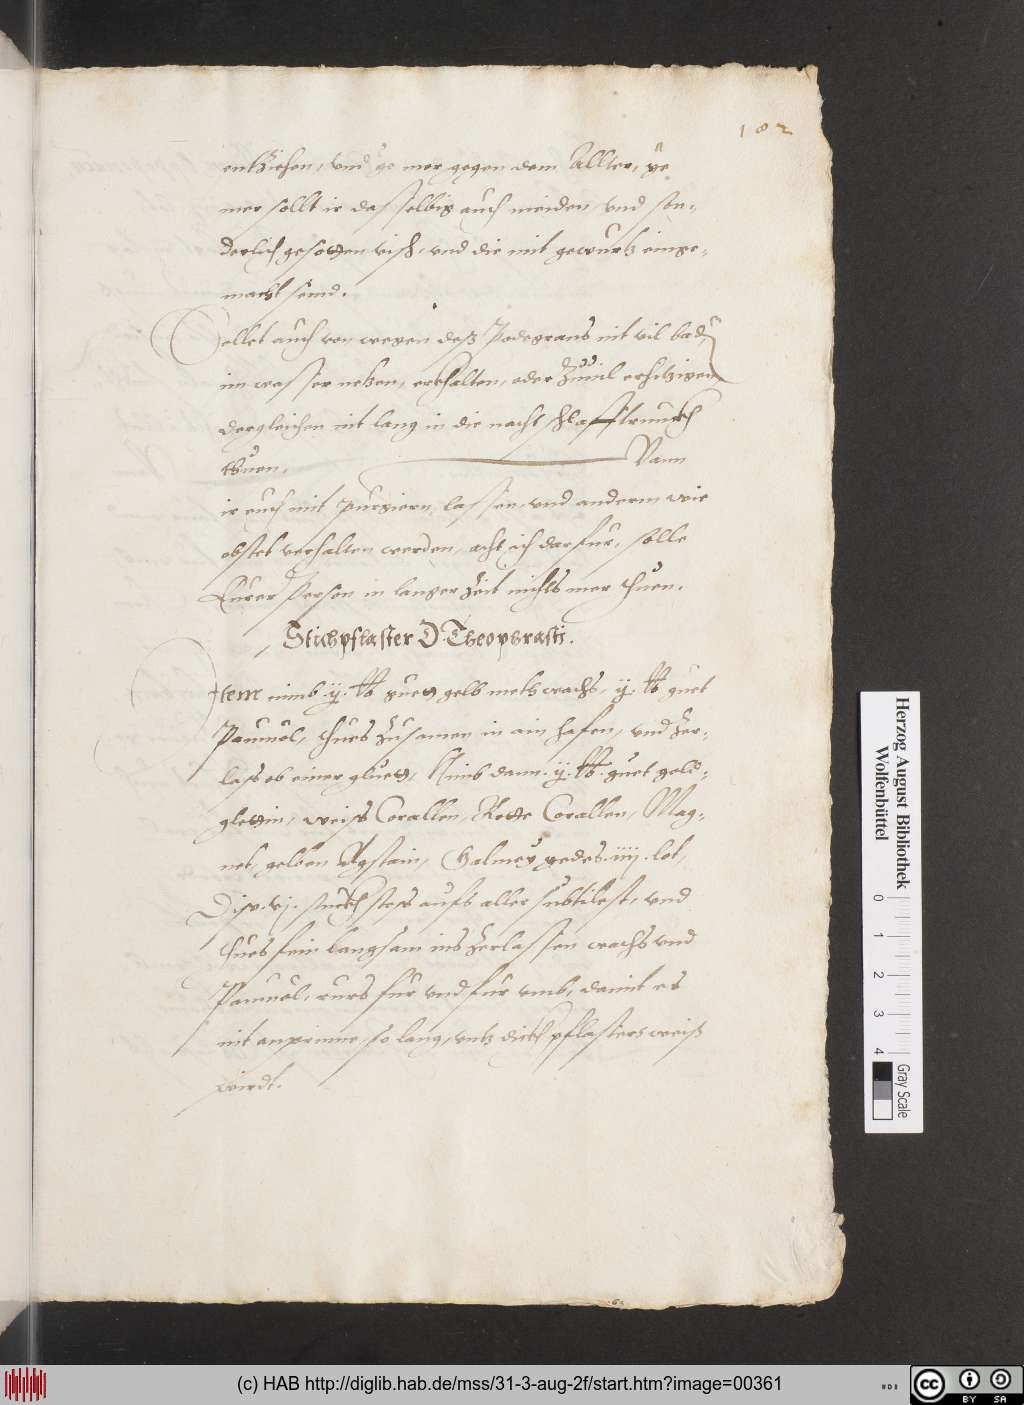 182
entziehen, vnd ye mer gegen dem Allter, ye
mer sollt ir dasselbig auch meiden vnd son-
derlich gesotten visch, vnd die mit gewürtz einge-
macht seind.
Sollet auch von wegen deß Podograns nit vil bad
im wasser netzen, erkhalten, oder Zuuil erhitzigen
dergleichen nit lang in die nacht schlafftrunckh
thuen. Wann
ir euch mit purgiern, lassen, vnd anderm wie
obstet verhalten werden, acht ich darfur, solle
Eurer Person in langer Zeit nichts mer thuen.
Stichpflaster D. Theophrasti.
Item nimb .ij. lb guet gelb metwachs, ij. lb guet
Paumöl, thues Zusamen in ain hafen, vnd Zer-
lass ob einer gluet, Nimb dann .ij. lb. guet gold-
glettin, weiss Corallen, Rotte Corallen, Mag-
net, gelben Agstain, Galmey yedes .iiij. lot,
stoss aufs aller subtilest, vnd
thues fein langsam ins Zerlassen wachs vnd
Paumöl, ruers fur vnd fur vmb, damit es
nit anprinne, so lang, vntz dickh pflasters weiß
wirdt.
Herzog August Bibliothek
Wolfenbüttel
0 1 2 3 4
Gray Scale
(c) HAB http://diglib.hab.de/mss/31-3-aug-2f/start.htm?image=00361
cc BY SA